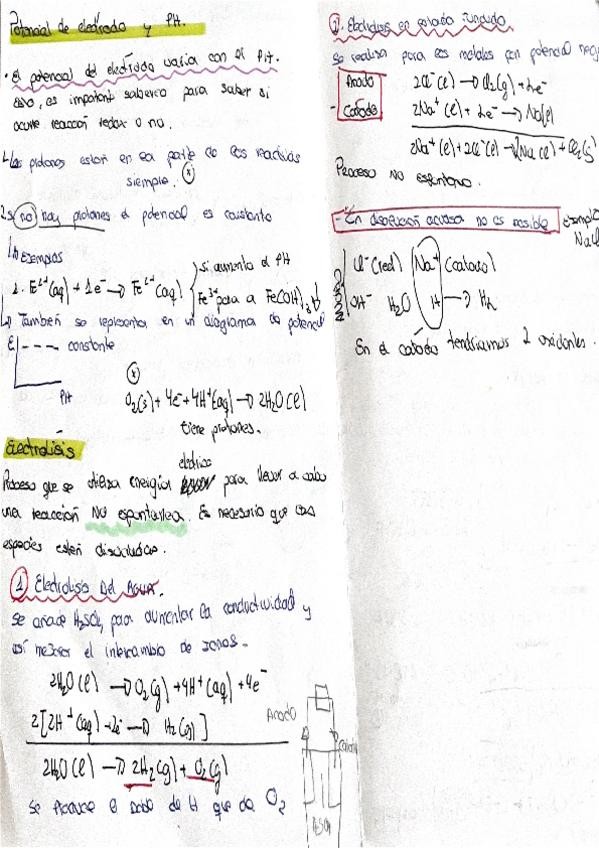 Potencial de electrodo y PH.
• El potencial del electrodo varia con el PH.
Esto, es importante saberlo para saber si
ocurre reacción redox o no.
1. Los protones están en la parte de los reactivos
siempre. (x)
2. si no hay protones el potencial es constante
Ejemplos
1. Fe³⁺(aq) + 1e⁻ → Fe²⁺(aq)
si aumenta el PH
Fe³⁺ pasa a Fe(OH)3 ↓
También se representa en un diagrama de potencial
E
--- constante
PH
(x)
O2(s) + 4e⁻ + 4H⁺(aq) → 2H2O(l)
tiene protones.
Electrolisis
eléctrica
Proceso que se utiliza energía para llevar a cabo
una reacción NO espontánea. Es necesario que las
especies estén disueltas.
1 Electrolisis Del AGUA.
se añade H2SO4 para aumentar la conductividad y
así mejorar el intercambio de iones.
2H2O(l) → O2(g) + 4H⁺(aq) + 4e⁻
2[2H⁺(aq) + 2e⁻ → H2(g)]
2H2O(l) → 2H2(g) + O2(g)
se produce el doble de H que de O2
Anodo
Catodo
H2SO4
2. Electrolisis en estado fundido.
se realiza para los metales con potencial neg
Anodo 2Cl⁻(l) → Cl2(g) + 2e⁻
- Catodo 2Na⁺(l) + 2e⁻ → Na(l)
2Na⁺(l) + 2Cl⁻(l) → 2Na(l) + Cl2(g)
Proceso NO espontáneo.
- En disolución acuosa no es posible
Ejemplo
NaCl
Cl⁻(red) Na⁺ (catodo)
OH⁻ H2O H⁺ → H2
En el catodo tendriamos 2 oxidantes.